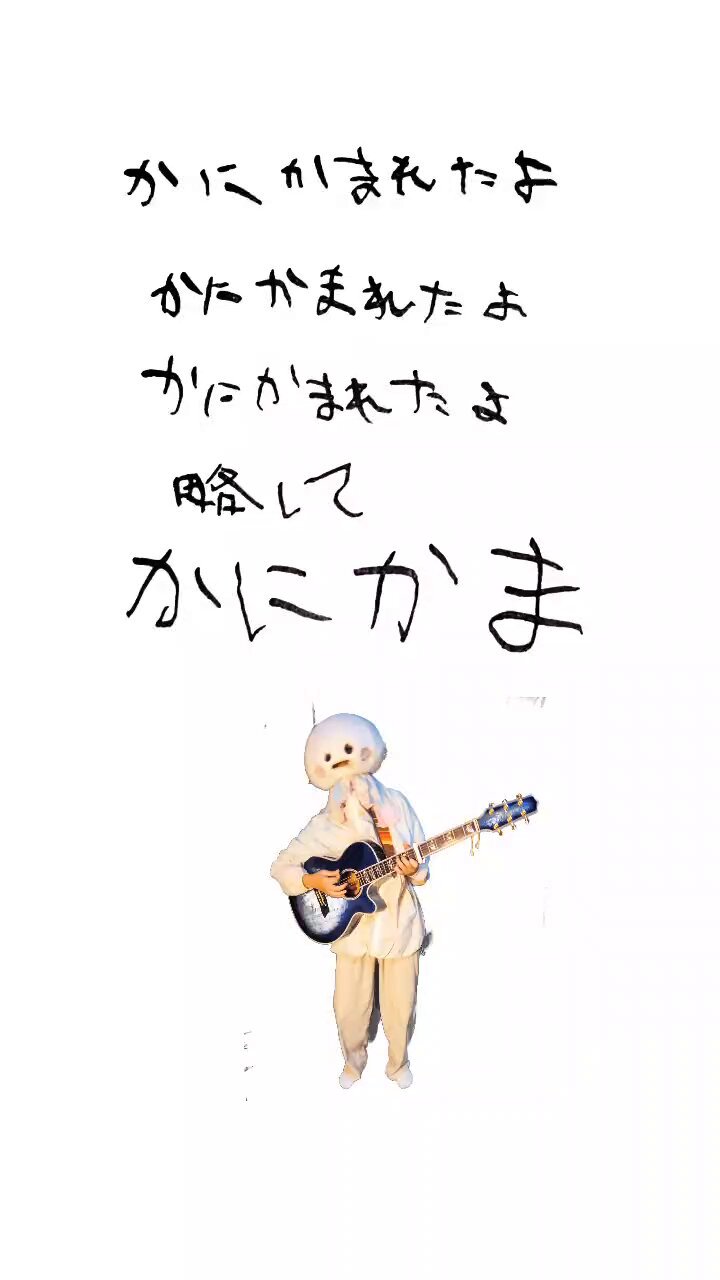 かにかまれたよ
かにかまれたよ
かにかまれたよ
略して
かにかま